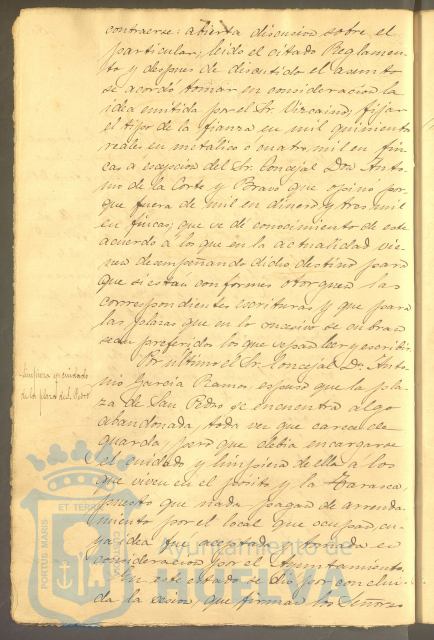 contraerse: abierta discusion sobre el
particular, leido el citado Reglamen-
to y despues de discutido el asunto
se acordo tomar en consideracion la
idea emitida por el Sr. Vizcaino, fijar
el tipo de la fianza en mil quinientos
reales en metalico o cuatro mil en fin-
cas a escepcion del Sr. Concejal Don Anto-
nio de la Corte y Bravo que opino por-
que fuera de mil en dinero y tres mil
en fincas; que se dé conocimiento de este
acuerdo á los que en la actualidad vie-
nen desempeñando dicho destino para
que si estan conformes otorguen las
correspondientes escrituras y que para
las plazas que en lo sucesivo se cubran
sean preferidos los que sepan leer y escribir.
Por ultimo el Sr. Concejal Dn. Anto-
nio Garcia Ramos espuso que la pla-
za de San Pedro se encuentra algo
abandonada, toda vez que carece de
guarda; pero que debia encargarse
el cuidado y limpieza de ella á los
que viven en el posito y la Tarasca,
puesto que nada pagan de arrenda-
miento por el local que ocupan, cu-
ya idea fue aceptada y tomada en
consideracion por el Ayuntamiento.
En este estado se dio por conclui-
da la sesion que firman los Señores
Limpieza y cuidado
de la plaza de S. Pedro
PORTUS MARIS
ET TERRAE
CUSTODIA
Ayuntamiento de
HUELVA